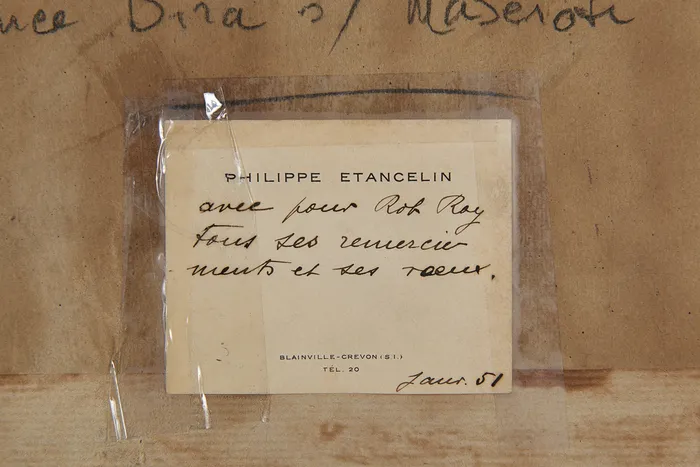 nce Bira s/ Maserati
PHILIPPE ETANCELIN
avec pour Rob Roy
tous ses remercie
ments et ses vœux.
BLAINVILLE-CREVON (S.I.)
TEL. 20
Janv. 51